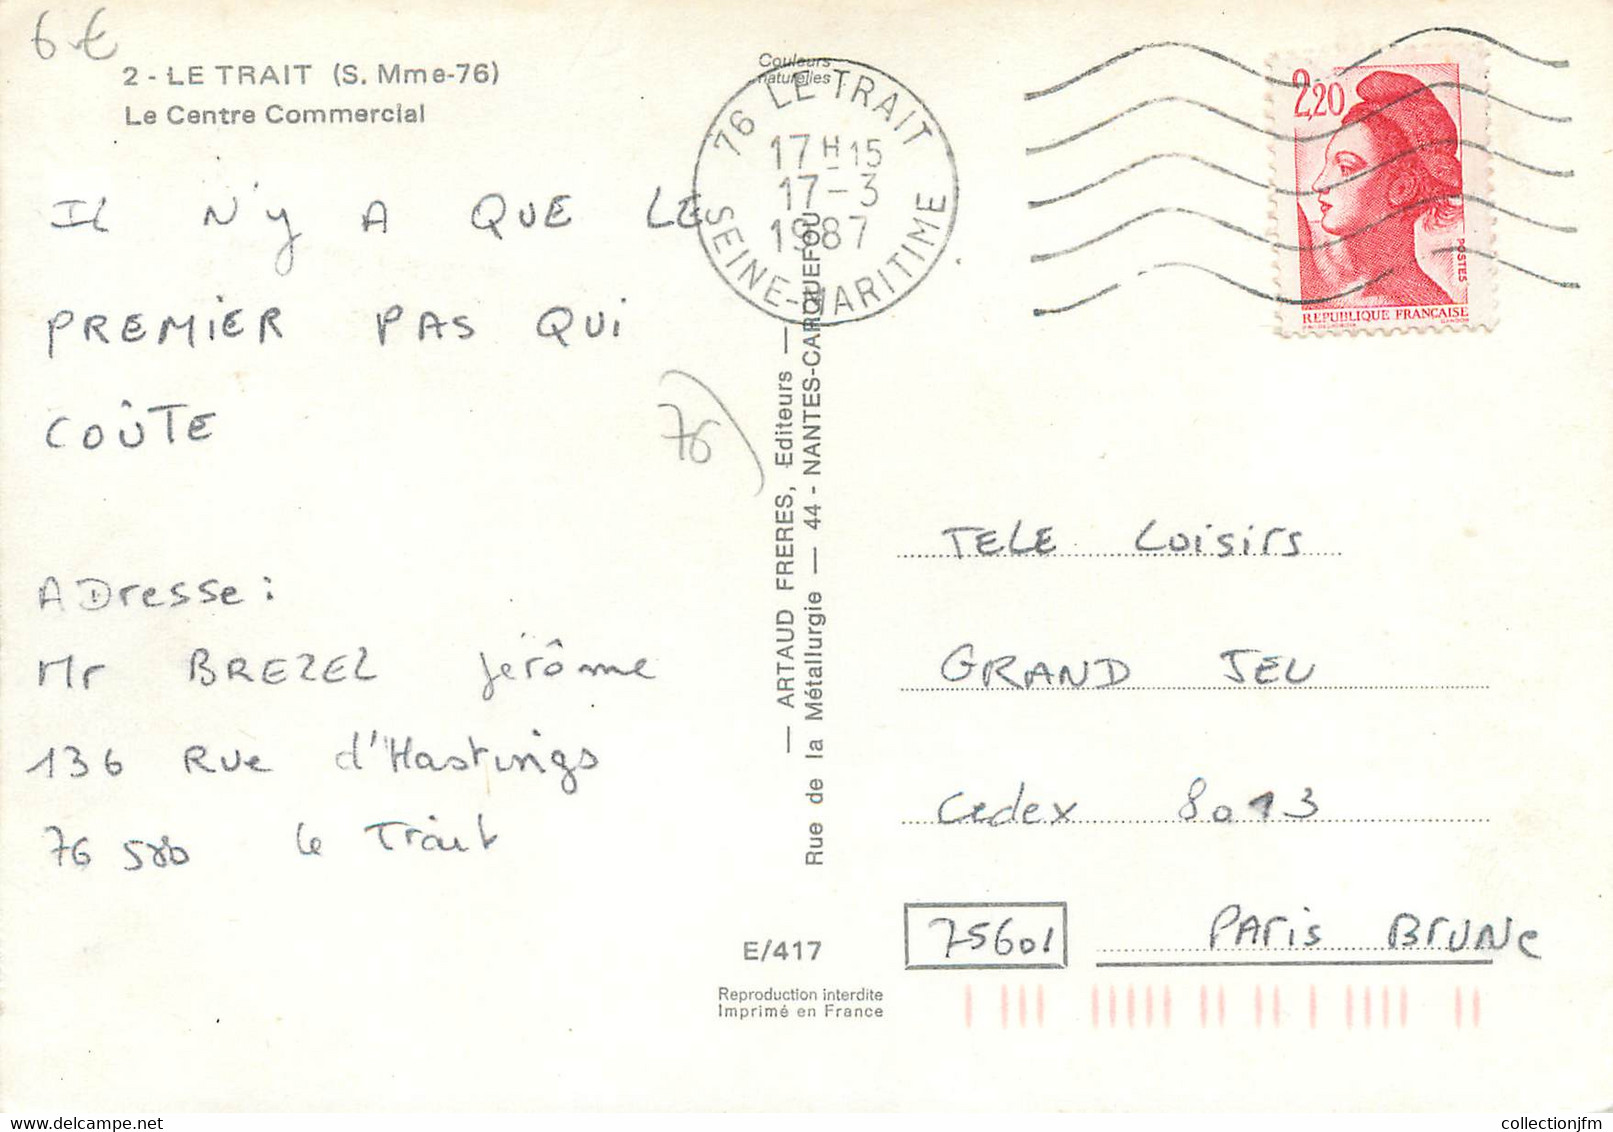 6 €
2 - LE TRAIT (S. Mme-76)
Le Centre Commercial
IL N'Y A QUE LE
PREMIER PAS QUI
COÛTE
76
ADresse :
Mr BREZEL Jérôme
136 Rue d'Hastings
76 580 le Trait
Couleurs
naturelles
76 LE TRAIT
17H15
17-3
1987
SEINE-MARITIME
— ARTAUD FRERES, Editeurs —
Rue de la Métallurgie — 44 - NANTES-CARQUEFOU
E/417
Reproduction interdite
Imprimé en France
2,20
POSTES
REPUBLIQUE FRANÇAISE
GANDON
TELE LoisirS
GRAND JEU
Cedex 8013
75601 PAriS BrUNe
collectionjfm